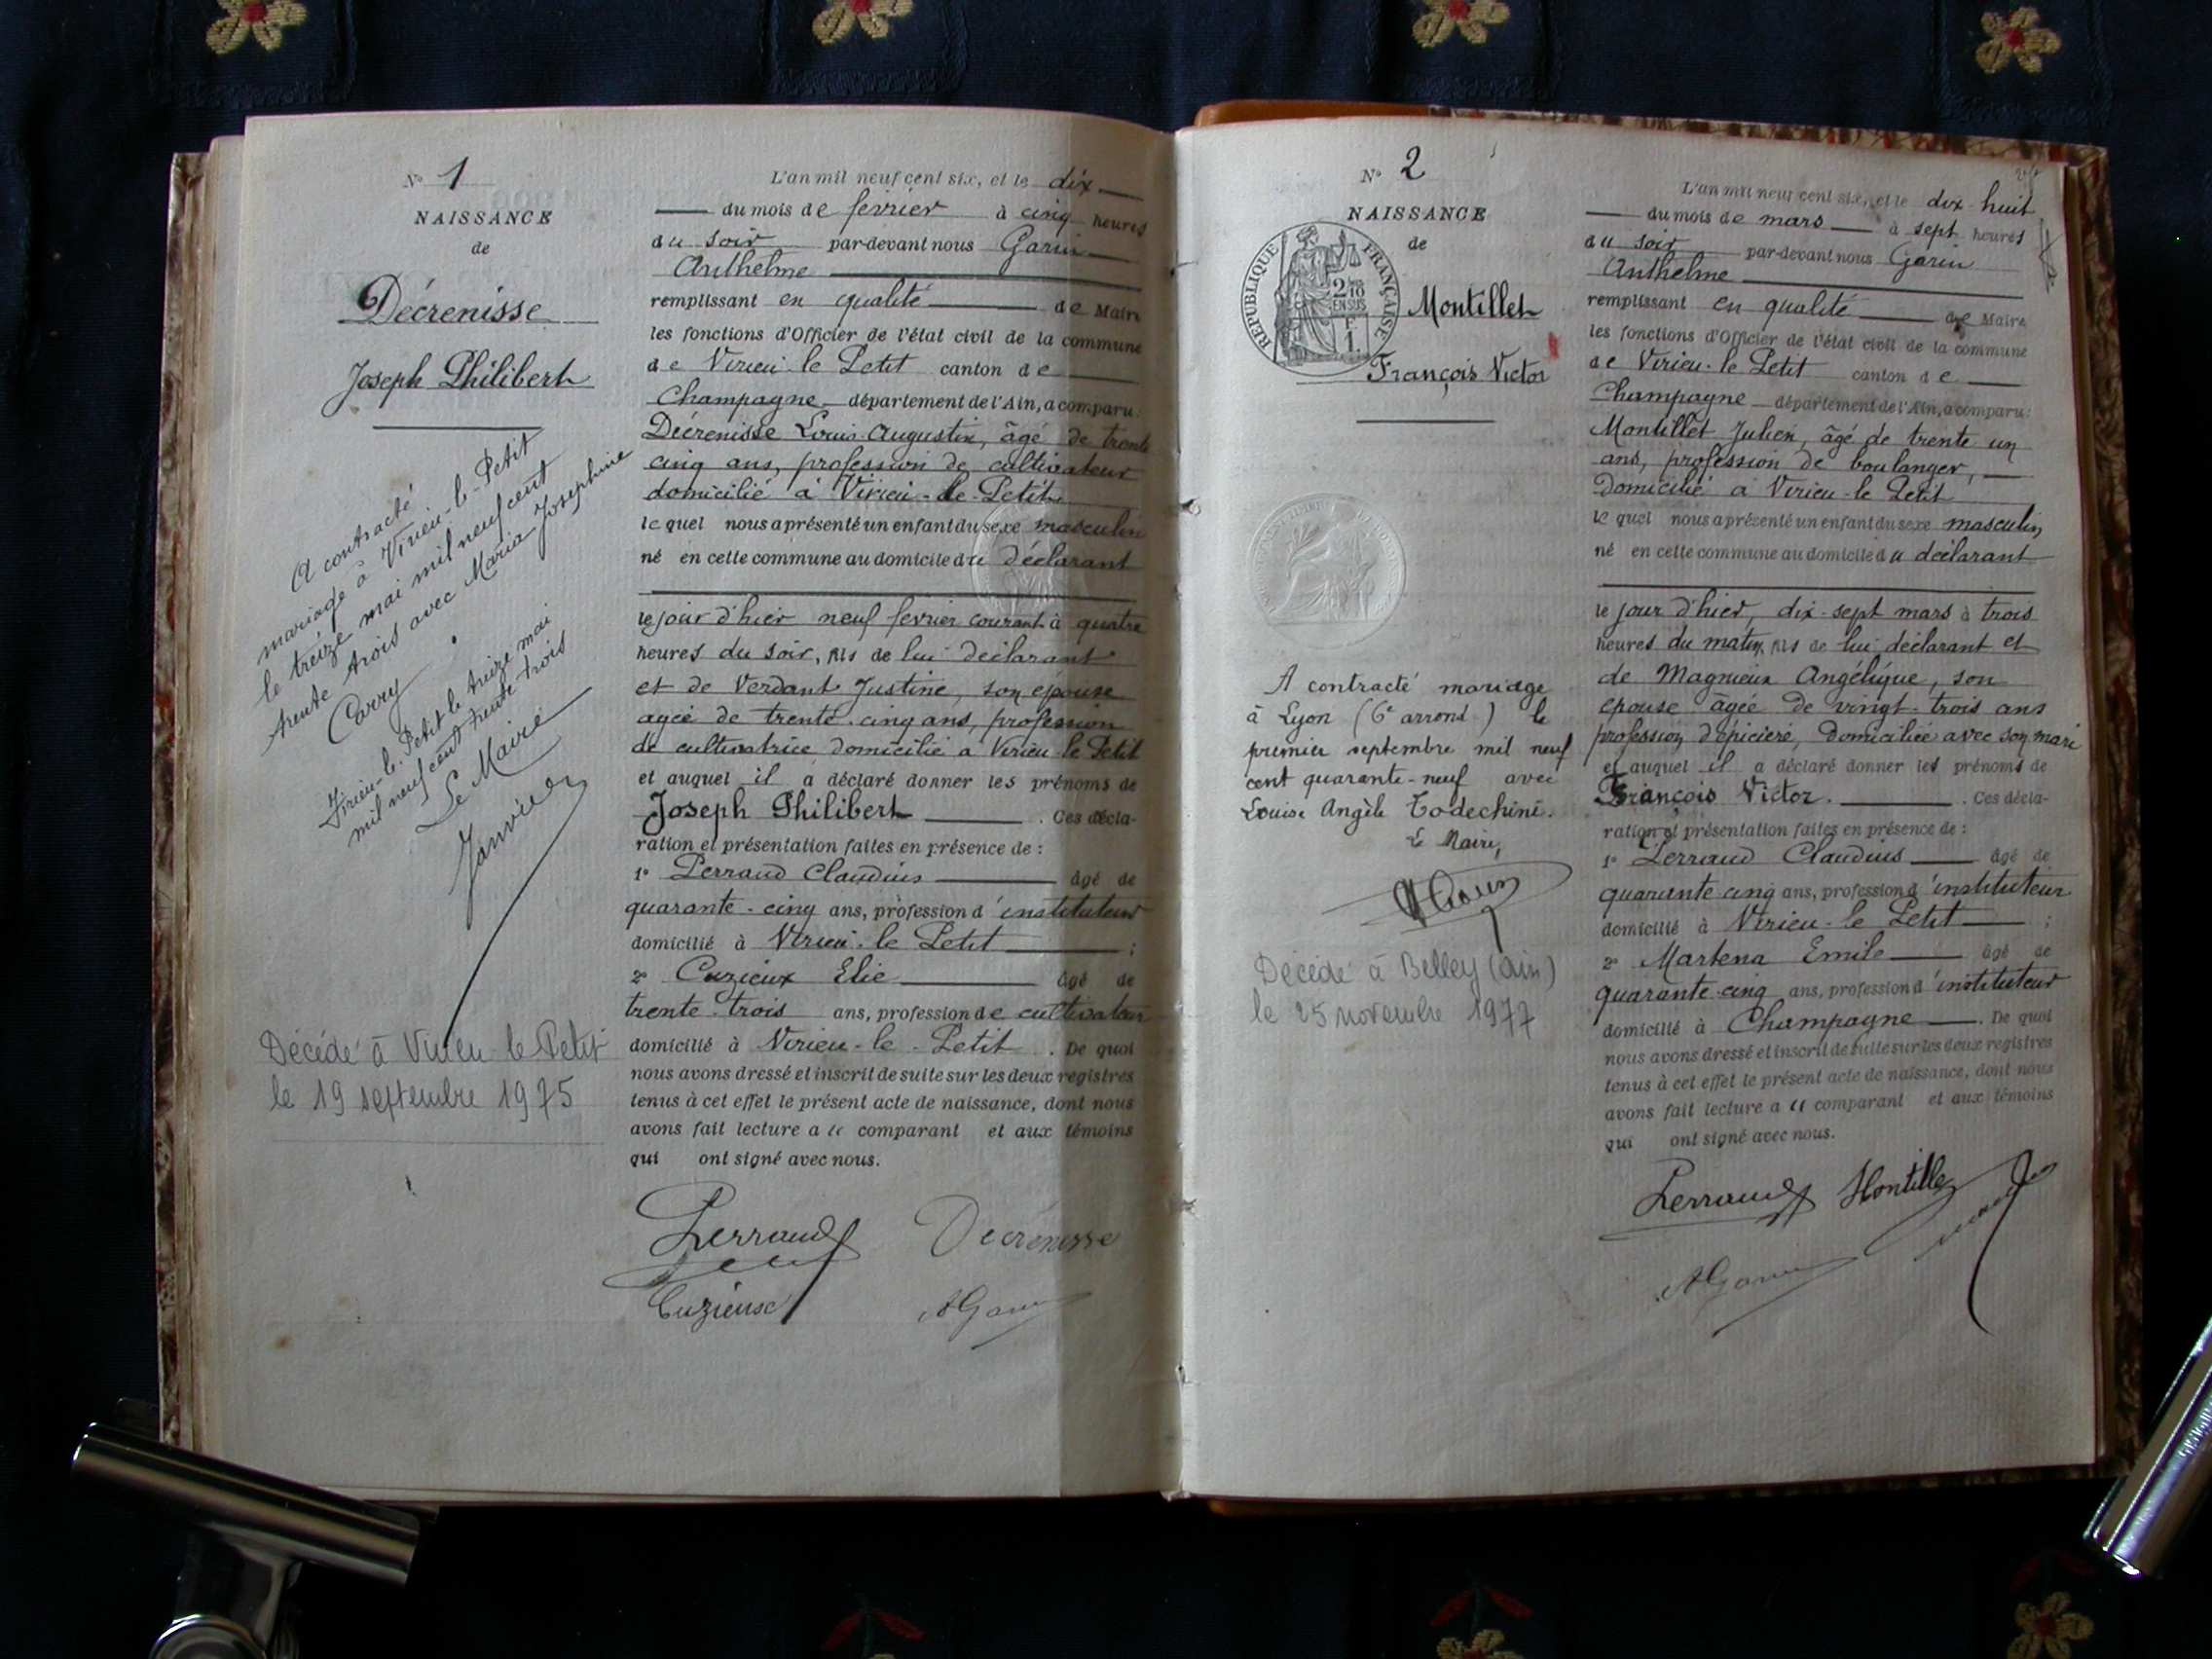 N° 1
NAISSANCE
de
Décrenisse
Joseph Philibert
A contracté
mariage à Virieu-le-Petit
le treize mai mil neuf cent
trente trois avec Maria Josephine
Carry
Virieu-le-Petit le treize mai
mil neuf cent trente trois
Le Maire
Décédé à Virieu-le-Petit
le 19 septembre 1975
L'an mil neuf cent six, et le dix
du mois de février à cinq heures
du soir par-devant nous Garin
Anthelme
remplissant en qualité de Maire
les fonctions d'Officier de l'état civil de la commune
de Virieu-le-Petit canton de
Champagne département de l'Ain, a comparu:
Décrenisse Louis Augustin, âgé de trente
cinq ans, profession de cultivateur
domicilié à Virieu-le-Petit
lequel nous a présenté un enfant du sexe masculin
né en cette commune au domicile du déclarant
le jour d'hier neuf fevrier courant à quatre
heures du soir, fils de lui déclarant
et de Verdant Justine, son épouse
agée de trente-cinq ans, profession
de cultivatrice domicilié à Virieu-le-Petit
et auquel il a déclaré donner les prénoms de
Joseph Philibert. Ces décla-
ration et présentation faites en présence de :
1° Perraud Claudius âgé de
quarante-cinq ans, profession d'instituteur
domicilié à Virieu-le-Petit ;
2° Cuzieux Elie âgé de
trente-trois ans, profession de cultivateur
domicilié à Virieu-le-Petit. De quoi
nous avons dressé et inscrit de suite sur les deux registres
tenus à cet effet le présent acte de naissance, dont nous
avons fait lecture au comparant et aux témoins
qui ont signé avec nous.
Perraud Decrenisse
Cuzieux AGarin
N° 2
NAISSANCE
de
RÉPUBLIQUE FRANÇAISE
2/10
EN SUS
F
1.
Montillet
François Victor
A contracté mariage
à Lyon (6e arrond) le
premier septembre mil neuf
cent quarante-neuf avec
Louise Angèle Todechini.
Le Maire,
Décédé à Belley (Ain)
le 25 novembre 1977
L'an mil neuf cent six, et le dix huit
du mois de mars à sept heures
du soir par-devant nous Garin
Anthelme
remplissant en qualité de Maire
les fonctions d'Officier de l'état civil de la commune
de Virieu-le-Petit canton de
Champagne département de l'Ain, a comparu:
Montillet Julien, âgé de trente un
ans, profession de boulanger,
Domicilié à Virieu-le-Petit
lequel nous a présenté un enfant du sexe masculin,
né en cette commune au domicile du déclarant
le jour d'hier, dix-sept mars à trois
heures du matin, fils de lui déclarant et
de Magnieux Angélique, son
épouse âgée de vingt-trois ans
profession d'épicière, Domiciliée avec son mari
et auquel il a déclaré donner les prénoms de
François Victor. Ces décla-
ration et présentation faites en présence de :
1° Perraud Claudius âgé de
quarante-cinq ans, profession d'instituteur
domicilié à Virieu-le-Petit ;
2° Martena Emile âgé de
quarante-cinq ans, profession d'instituteur
domicilié à Champagne. De quoi
nous avons dressé et inscrit de suite sur les deux registres
tenus à cet effet le présent acte de naissance, dont nous
avons fait lecture au comparant et aux témoins
qui ont signé avec nous.
Perraud Montillet
AGarin